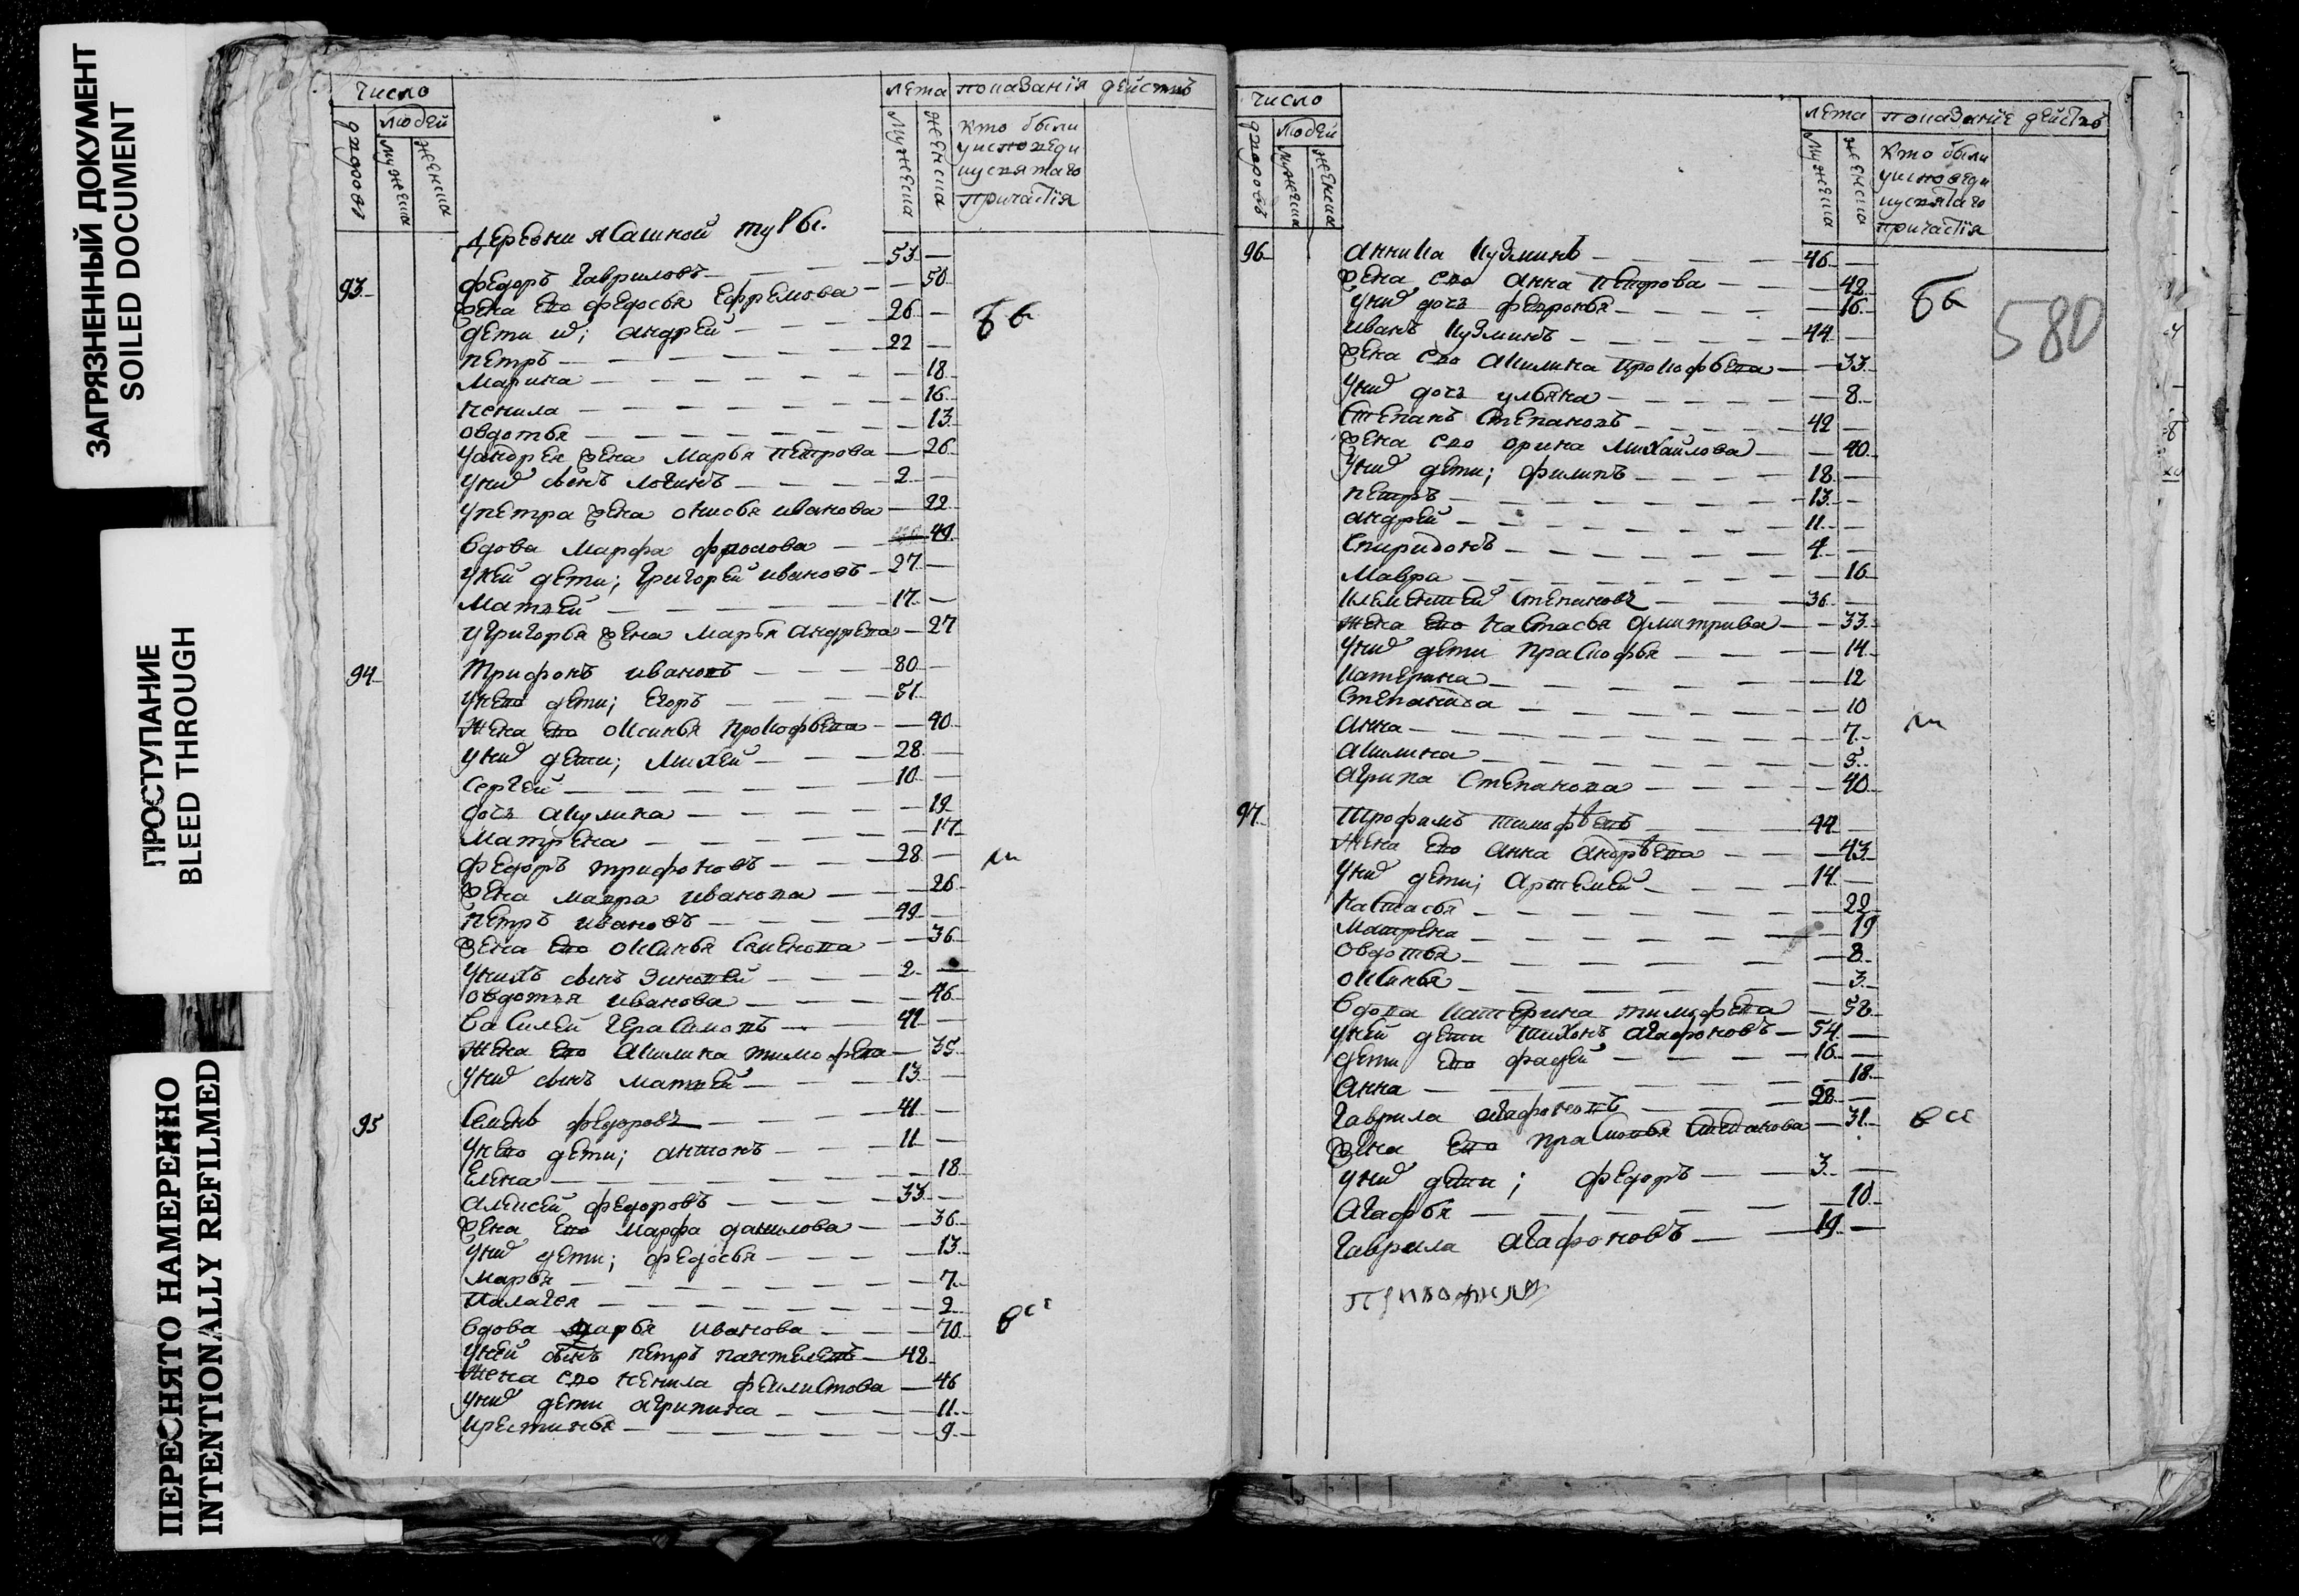 ЗАГРЯЗНЕННЫЙ ДОКУМЕНТ
SOILED DOCUMENT
ПРОСТУПАНИЕ
BLEED THROUGH
ПЕРЕСНЯТО НАМЕРЕННО
INTENTIONALLY REFILMED
Число
дворовъ
людей
мужеска
женска
лета
мужеска
женска
показанія действъ
кто были
уисповеди
искятаго
причастія
Деревни Ясашной
93 федоръ Гавриловъ 53
жена ево федосья Ефремова 50
дети их; андрей 26
петръ 22
Марина 18
ненила 16
овдотья 13
уандрея жена Марья петрова 26
уних сынъ логинъ 2
упетра жена онисья иванова 22
вдова Марфа фролова 49
уней дети; Григорей ивановъ 27
Матвей 17
уГригорья жена Марья андрева 27
94 Трифонъ ивановъ 80
унево дети; Егоръ 51
жена ево оксинья прокофьева 40
уних дети; михей 28
сергей 10
дочь акулина 19
матрена 17
федоръ трифоновъ 28
жена мавра иванова 26
петръ ивановъ 49
жена ево оксинья семенова 36
унихъ сынъ Зиновей 2
овдотья иванова 46
василей герасимовъ 41
жена ево акилина тимофева 35
уних сынъ матвей 13
95 семенъ федоровъ 41
унево дети; антонъ 11
Елена 18
алексей федоровъ 33
жена ево марфа данилова 36
уних дети; федосья 13
марья 7
палагея 2
вдова марья иванова 70
уней сынъ петръ пантелевъ 48
жена ево ненила феклистова 46
уних дети агрипина 11
крестинья 9
Число
дворовъ
людей
мужеска
женска
лета
мужеска
женска
показание действъ
кто были
уисповеди
искятаго
причастія
580
96 аника кузминъ 46
жена ево анна петрова 48
уних дочь февронья 16
иванъ кузминъ 44
жена ево акилина прокофьева 33
уних дочь ульяна 8
степанъ степановъ 42
жена ево орина михайлова 40
уних дети; филипъ 18
петръ 13
андрей 11
спиридонъ 4
мавра 16
клементей степановъ 36
жена ево настасья дмитрива 33
уних дети прасковья 14
катерина 12
степанида 10
анна 7
акилина 5
агрипа степанова 40
97 трофимъ тимофевъ 44
жена ево анна андрева 43
уних дети; артемей 14
настасья 22
матрена 19
овдотья 8
оксинья 3
вдова катерина тимофева 58
уней дети тихонъ агафоновъ 54
дети ево фадей 16
анна 18
гаврила агафоновъ 28
жена ево прасковья степанова 31
уних дети; федоръ 3
агафья 10
гаврила агафоновъ 19